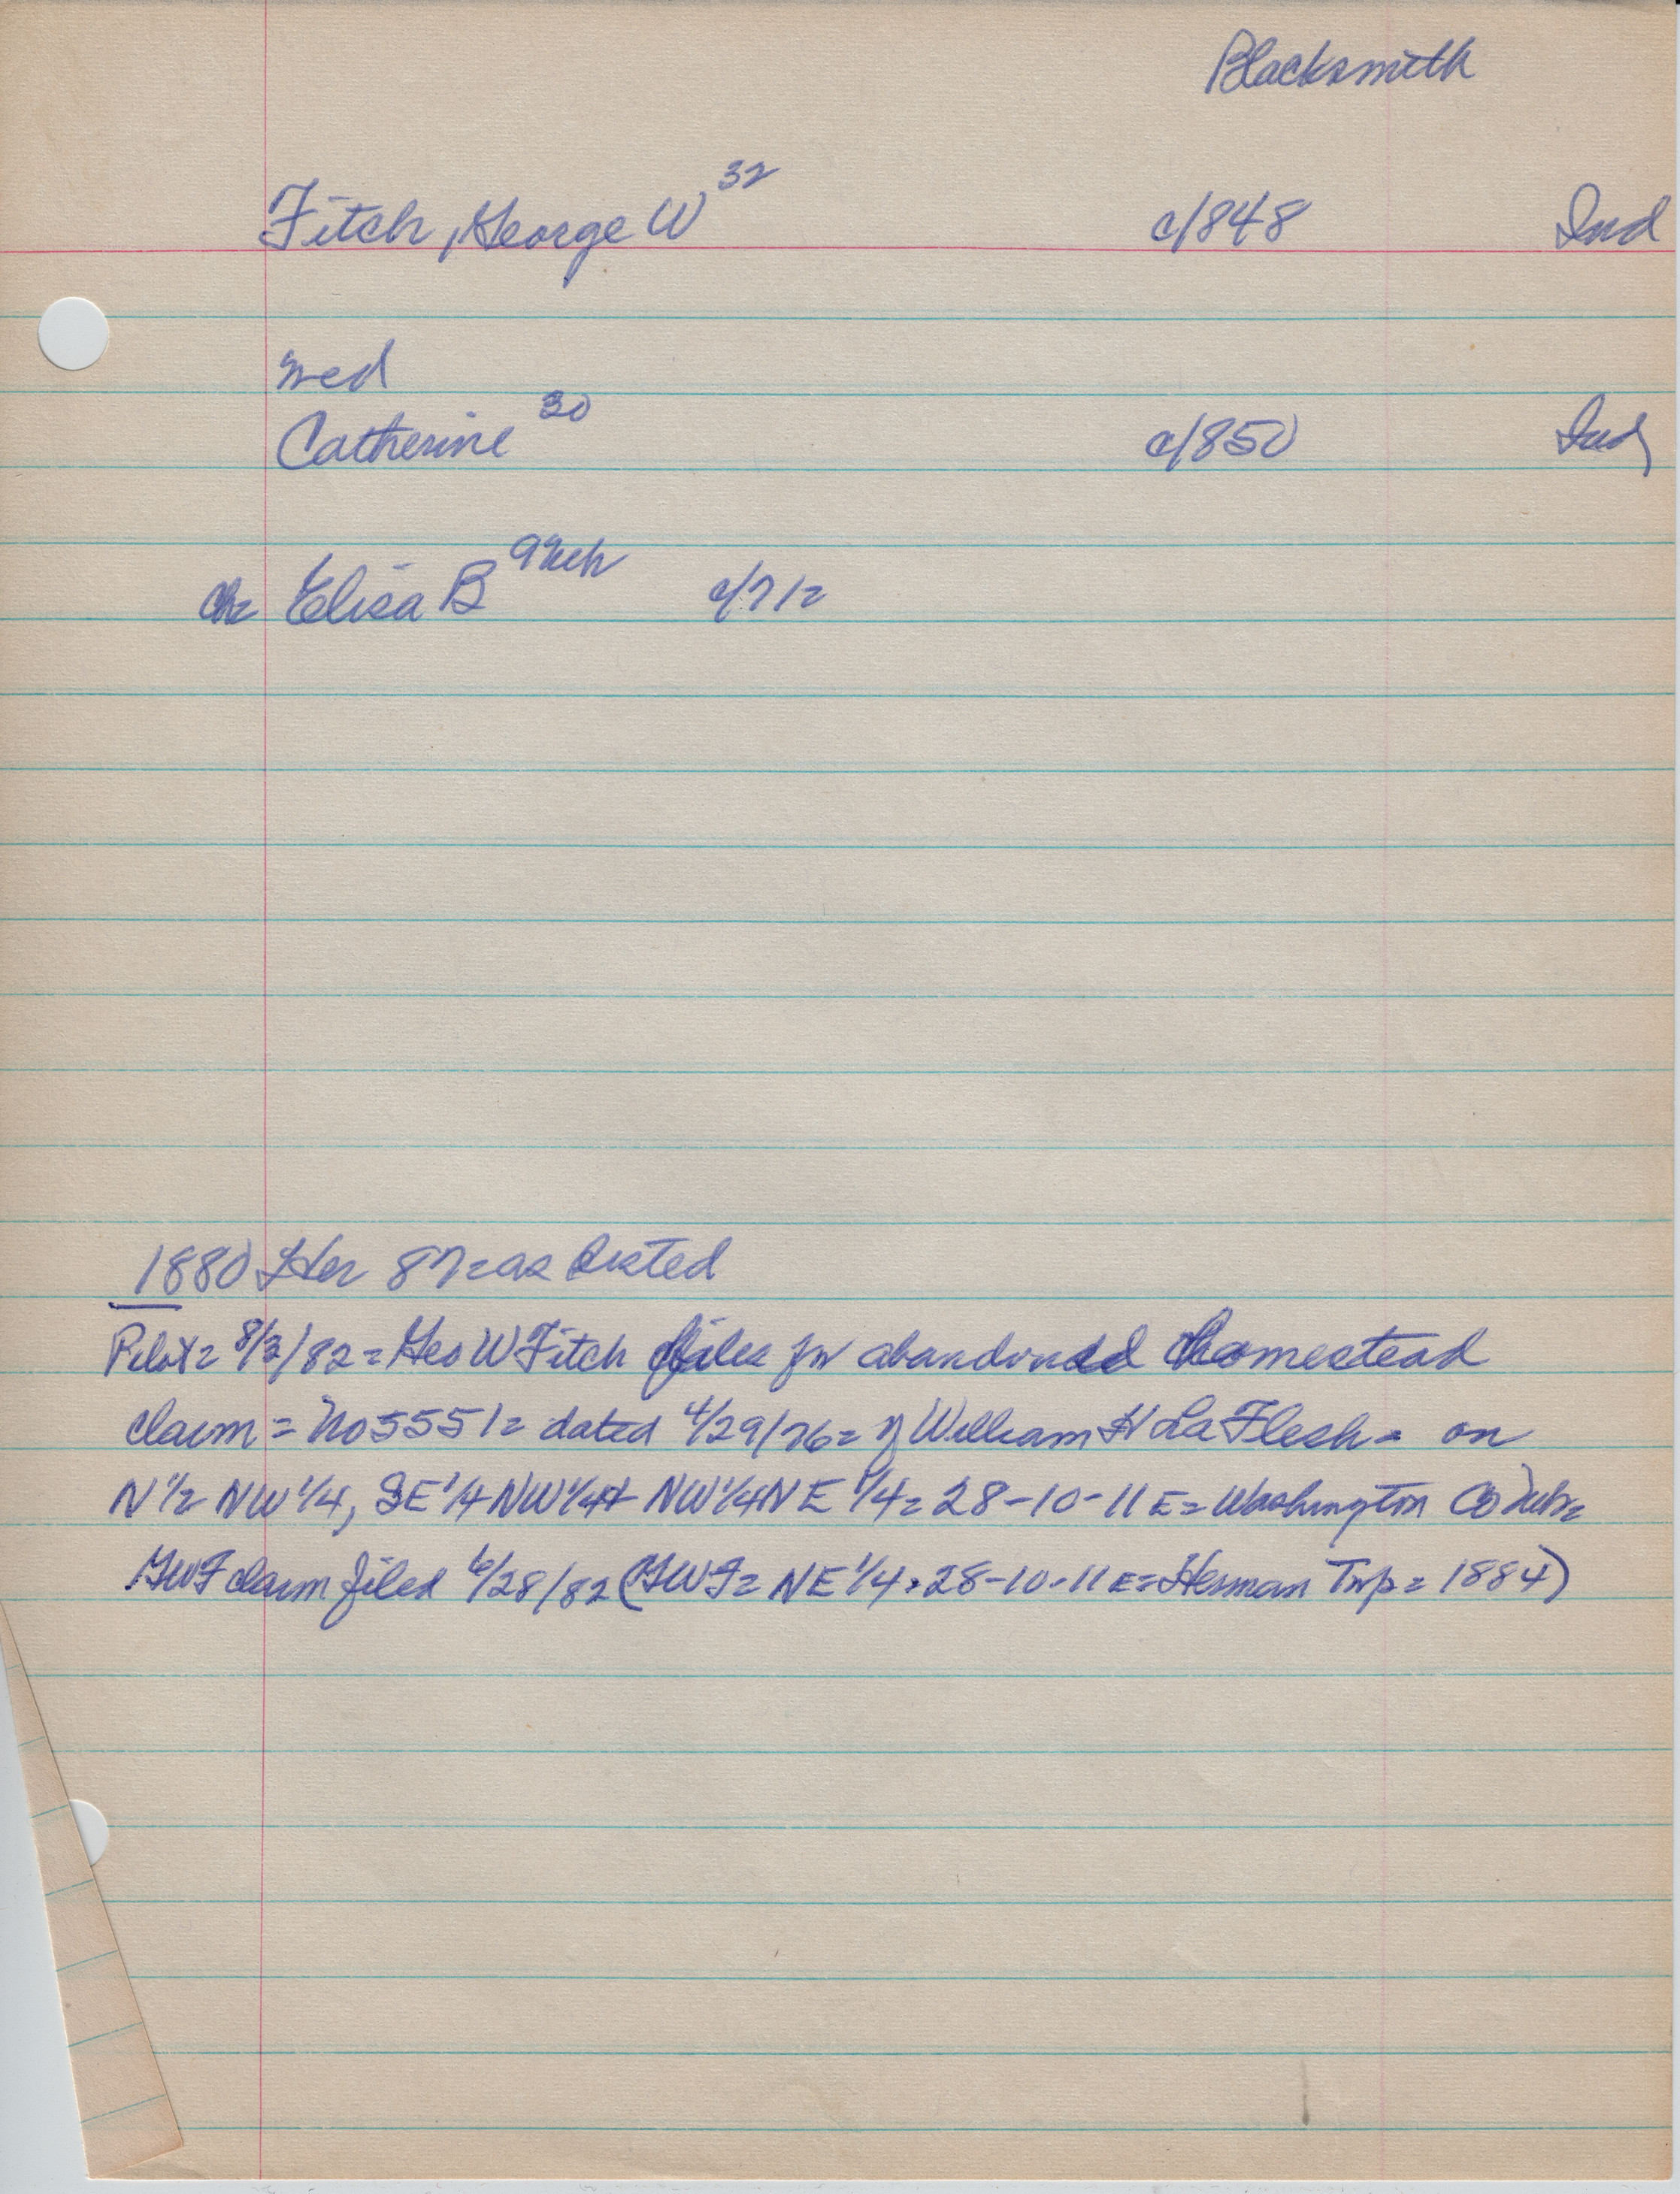 Blacksmith
Fitch, George W 32 c1848 Ind
med
Catherine 30 c1850 Ind
ch= Elisa B 9 Neb c/71=
1880 Her 87= as listed
Pilot= 8/3/82= Geo W Fitch files for abandoned homestead
claim= No 5551= dated 4/29/76= of William H La Flesh= on
N 1/2 NW 1/4, SE 1/4 NW 1/4 + NW 1/4 NE 1/4= 28-10-11 E= Washington Co Nebr=
GWF claim filed 6/28/82 (GWF= NE 1/4. 28-10-11 E= Herman Twp= 1884)